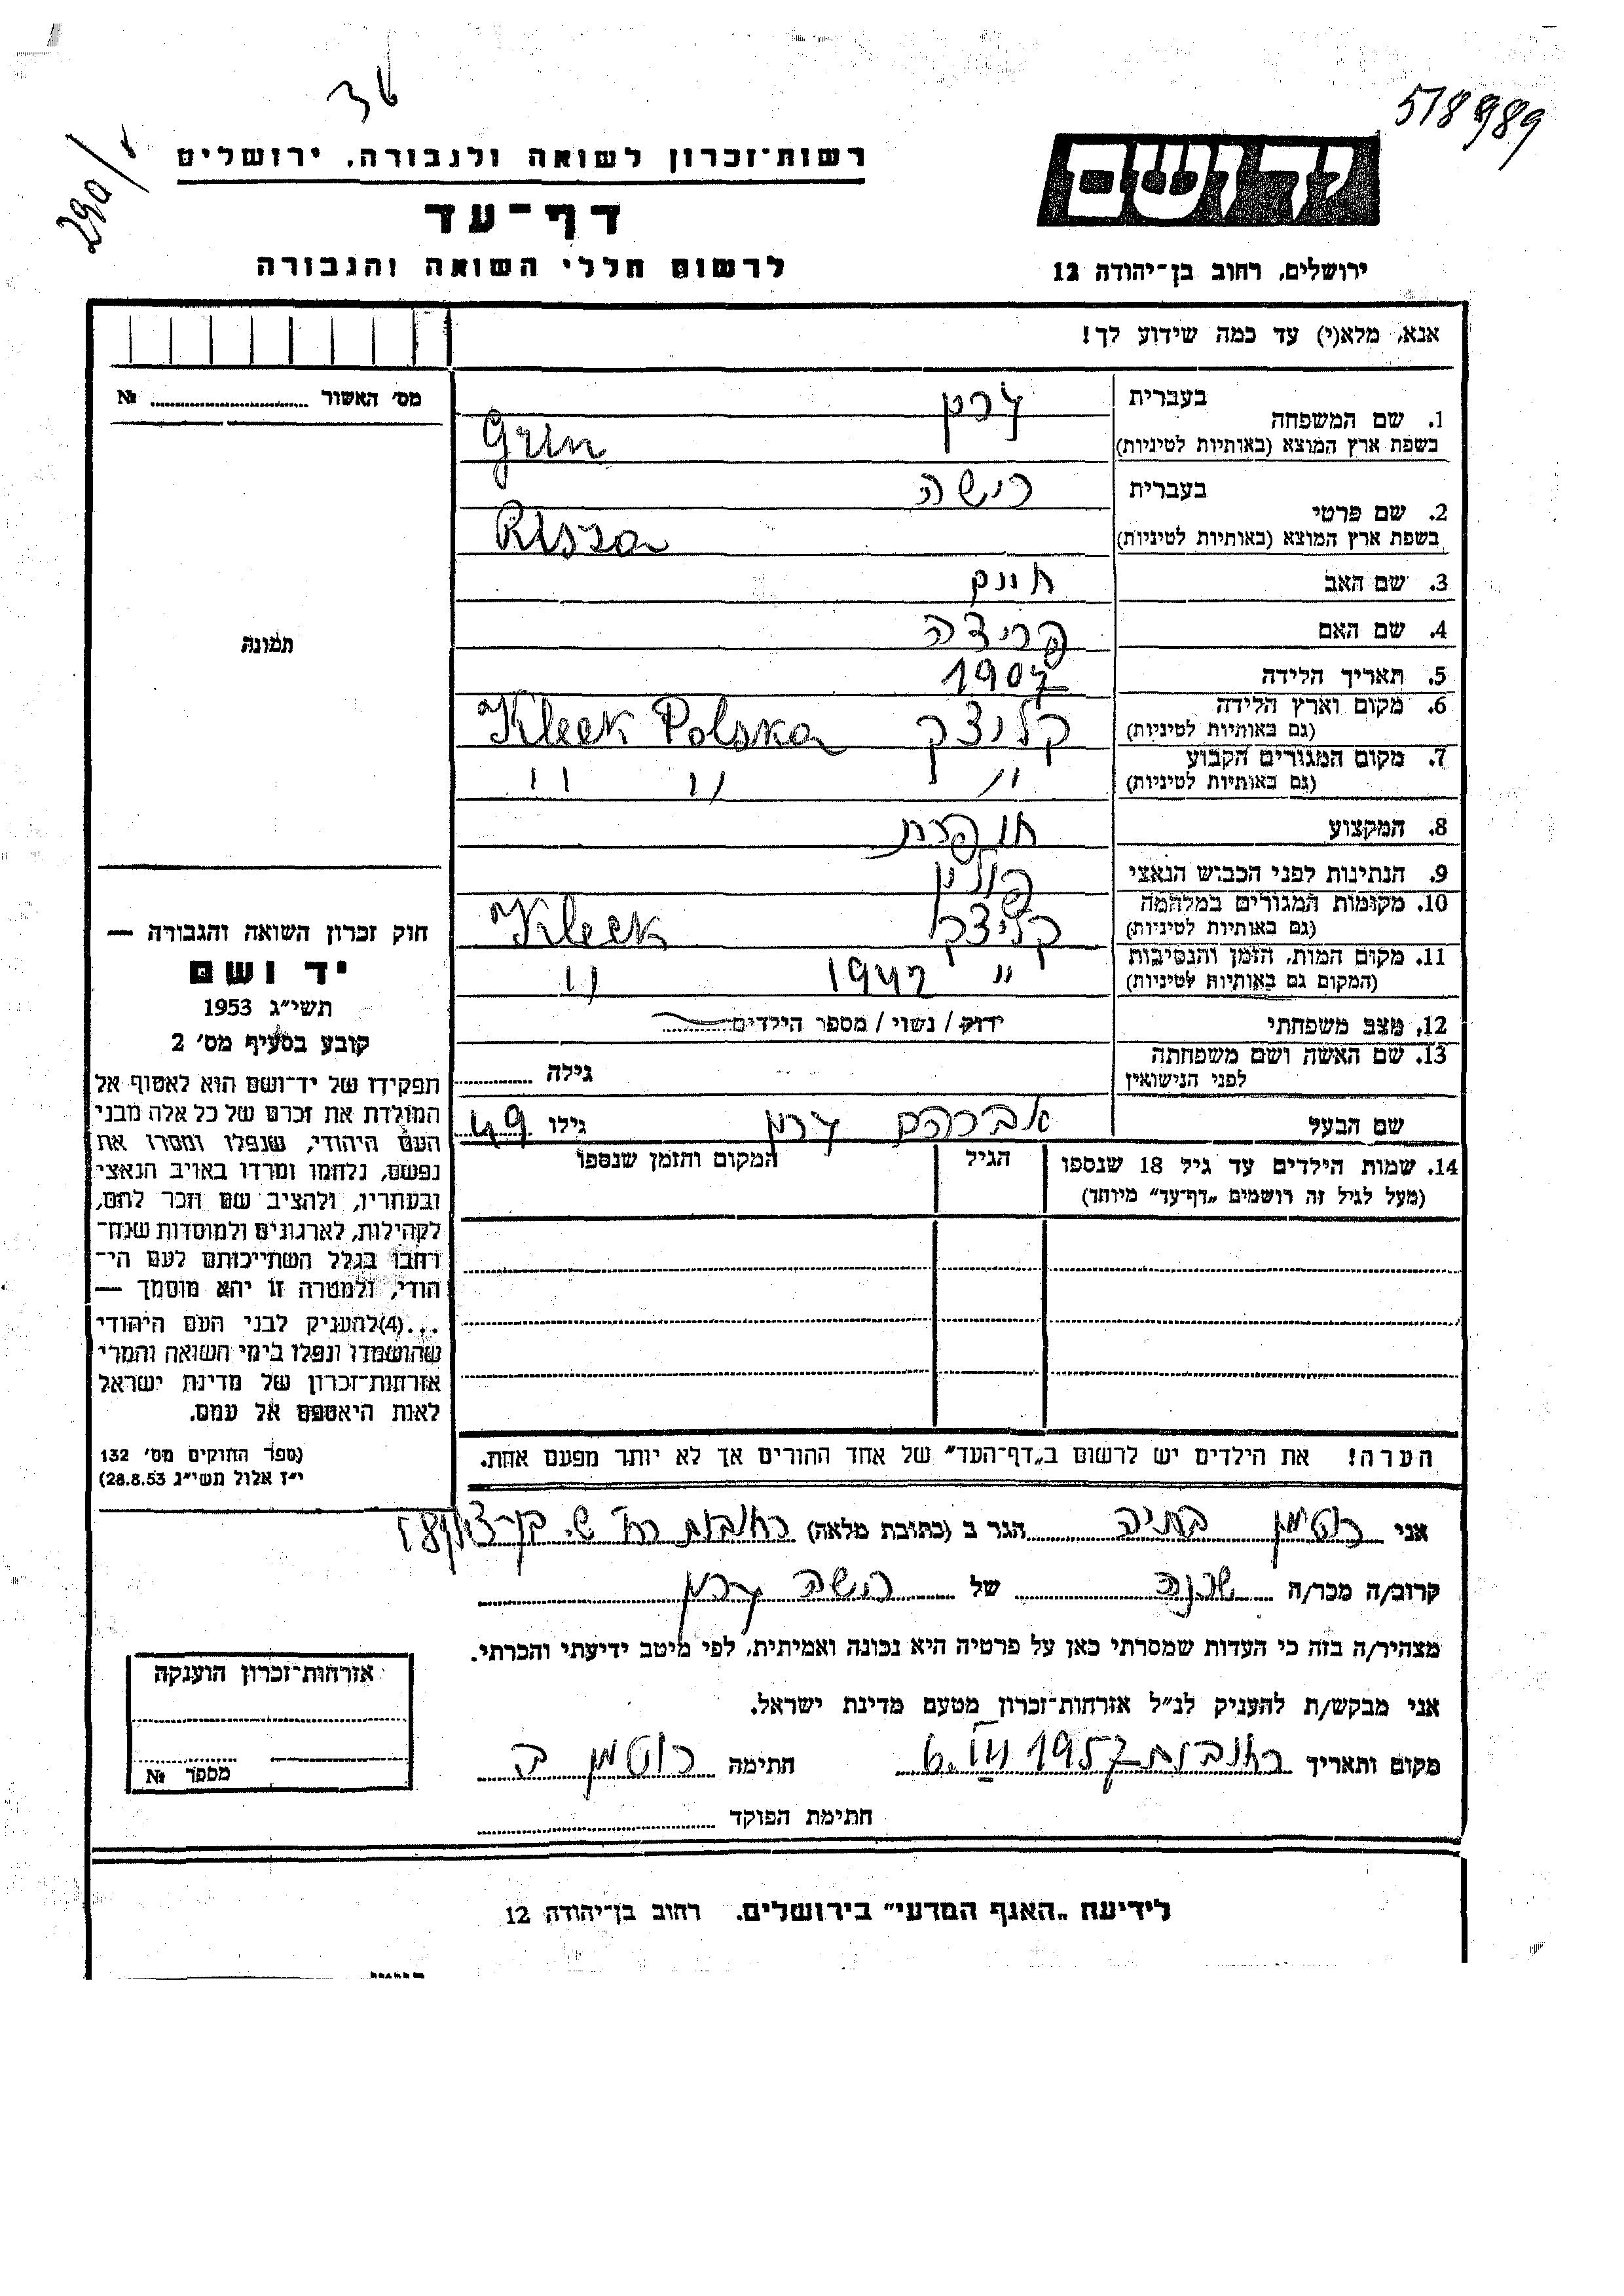 518989
טל
290/
יד ושם
רשות־זכרון לשואה ולגבורה, ירושלים
דף־עד
לרשום חללי השואה והגבורה
ירושלים, רחוב בן־יהודה 12
אנא, מלא(י) עד כמה שידוע לך!
מס' האשור ........ №
תמונה
1. שם המשפחה
בעברית גרין
בשפת ארץ המוצא (באותיות לטיניות) Grin
2. שם פרטי
בעברית רישה
בשפת ארץ המוצא (באותיות לטיניות) Risza
3. שם האב
4. שם האם פריצה
5. תאריך הלידה 1907
6. מקום וארץ הלידה
(גם באותיות לטיניות) קליצק Kleck Polska
7. מקום המגורים הקבוע
(גם באותיות לטיניות) " " "
8. המקצוע תופרת
9. הנתינות לפני הכבוש הנאצי פולין
10. מקומות המגורים במלחמה
(גם באותיות לטיניות) קליצק Kleck
11. מקום המות, הזמן והנסיבות
(המקום גם באותיות לטיניות) " 1942 "
12. מצב משפחתי רווק / נשוי / מספר הילדים
13. שם האשה ושם משפחתה
לפני הנישואין גילה ........
שם הבעל אברהם גרין גילו 49
14. שמות הילדים עד גיל 18 שנספו
(מעל לגיל זה רושמים „דף־עד" מיוחד)
הגיל
המקום והזמן שנספו
הערה! את הילדים יש לרשום ב„דף־העד" של אחד ההורים אך לא יותר מפעם אחת.
חוק זכרון השואה והגבורה —
יד ושם
תשי"ג 1953
קובע בסעיף מס' 2
תפקידו של יד־ושם הוא לאסוף אל
המולדת את זכרם של כל אלה מבני
העם היהודי, שנפלו ומסרו את
נפשם, נלחמו ומרדו באויב הנאצי
ובעוזריו, ולהציב שם וזכר להם,
לקהילות, לארגונים ולמוסדות שנח־
רבו בגלל השתייכותם לעם הי־
הודי, ולמטרה זו יהא מוסמך —
...(4)להעניק לבני העם היהודי
שהושמדו ונפלו בימי השואה והמרי
אזרחות־זכרון של מדינת ישראל
לאות היאספם אל עמם.
(ספר החוקים מס' 132
י"ז אלול תשי"ג 28.8.53)
אני רוטמן בתיה הגר ב (כתובת מלאה) רחובות רח' ש. בן־ציון
קרוב/ה מכר/ה שכנה של רישה גרין
מצהיר/ה בזה כי העדות שמסרתי כאן על פרטיה היא נכונה ואמיתית, לפי מיטב ידיעתי והכרתי.
אני מבקש/ת להעניק לנ"ל אזרחות־זכרון מטעם מדינת ישראל.
מקום ותאריך רחובות 6.VII 1957 חתימה רוטמן ב
חתימת הפוקד
אזרחות־זכרון הוענקה
מספר №
לידיעת „האגף המדעי" בירושלים, רחוב בן־יהודה 12